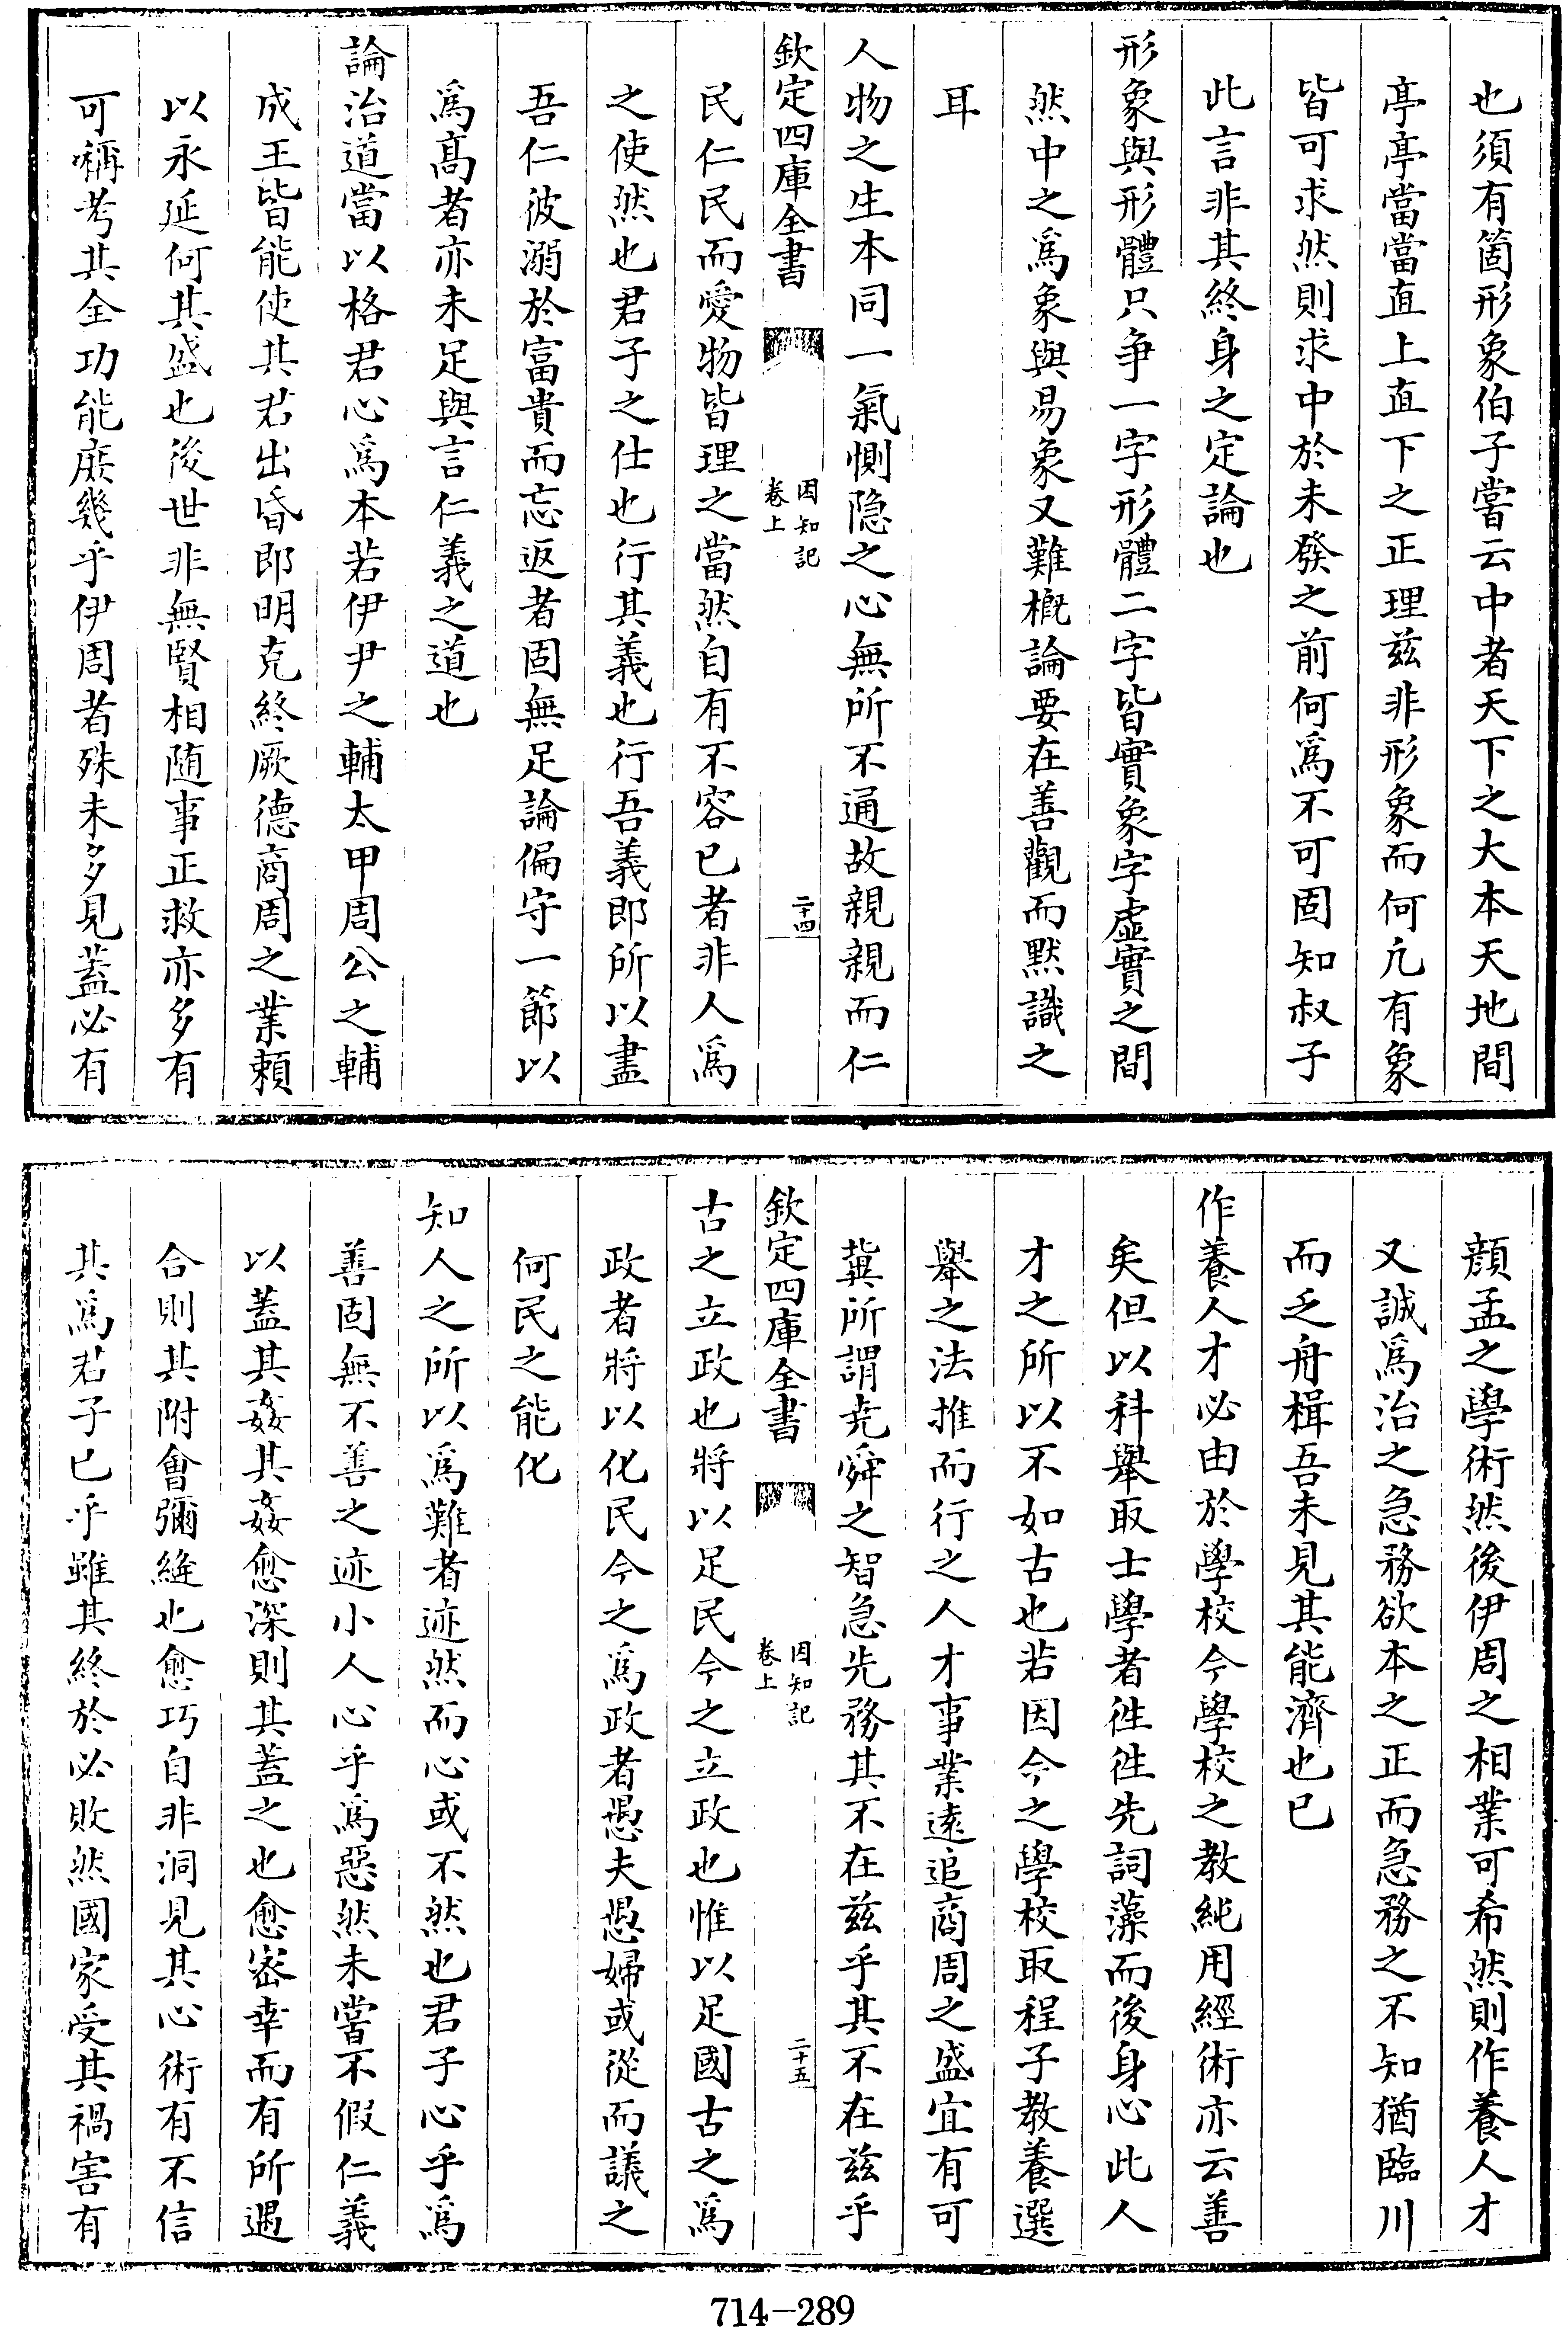 也須有箇形象伯子嘗云中者天下之大本天地間
亭亭當當直上直下之正理兹非形象而何凢有象
皆可求然則求中於未發之前何爲不可固知叔子
此言非其終身之定論也
形象與形體只争一字形體二字皆實象字虛實之間
然中之爲象與易象又難槪論要在善觀而默識之
耳
人物之生本同一氣惻隐之心無所不通故親親而仁
欽定四庫全書
困知記
卷上
二十四
民仁民而愛物皆理之當然自有不容已者非人爲
之使然也君子之仕也行其義也行吾義即所以盡
吾仁彼溺於富貴而忘返者固無足論偏守一節以
爲髙者亦未足與言仁義之道也
論治道當以格君心爲本若伊尹之輔太甲周公之輔
成王皆能使其君出昏即明克終厥德商周之業頼
以永延何其盛也後世非無賢相随事正救亦多有
可稱考其全功能庶幾乎伊周者殊未多見蓋必有
顔孟之學術然後伊周之相業可希然則作養人才
又誠爲治之急務欲本之正而急務之不知猶臨川
而乏舟楫吾未見其能濟也已
作養人才必由於學校今學校之教純用經術亦云善
矣但以科舉取士學者徃徃先詞藻而後身心此人
才之所以不如古也若因今之學校取程子教養選
舉之法推而行之人才事業逺追商周之盛宜有可
冀所謂尭舜之智急先務其不在兹乎其不在兹乎
欽定四庫全書
困知記
卷上
二十五
古之立政也將以足民今之立政也惟以足國古之爲
政者將以化民今之爲政者愚夫愚婦或從而議之
何民之能化
知人之所以爲難者迹然而心或不然也君子心乎爲
善固無不善之迹小人心乎爲惡然未嘗不假仁義
以蓋其姦其姦愈深則其蓋之也愈宻幸而有所遇
合則其附會彌縫也愈巧自非洞見其心術有不信
其爲君子已乎雖其終於必敗然國家受其禍害有
714-289